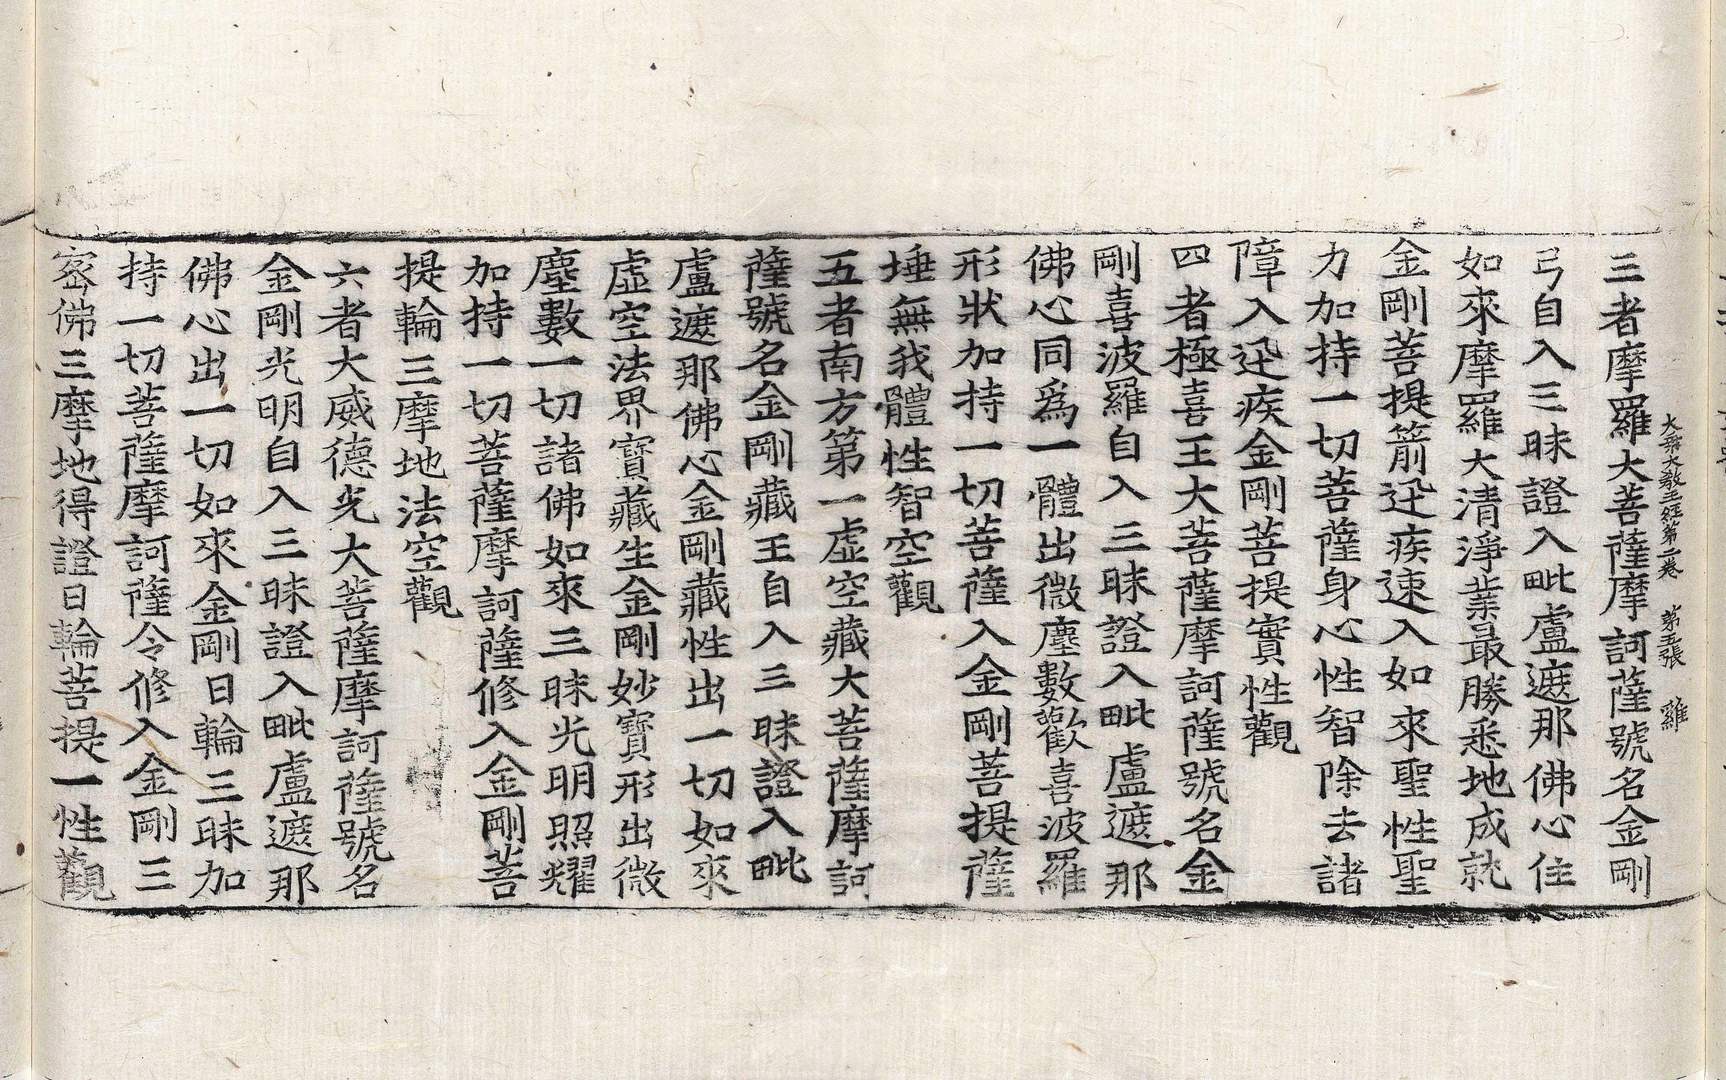 大乘大教王經第二卷　第五張　雞
三者摩羅大菩薩摩訶薩號名金剛
弓自入三昧證入毗盧遮那佛心住
如來摩羅大清淨業最勝悉地成就
金剛菩提箭迅疾速入如來聖性聖
力加持一切菩薩身心性智除去諸
障入迅疾金剛菩提實性觀
四者極喜王大菩薩摩訶薩號名金
剛喜波羅自入三昧證入毗盧遮那
佛心同爲一體出微塵數歡喜波羅
形狀加持一切菩薩入金剛菩提薩
埵無我體性智空觀
五者南方第一虛空藏大菩薩摩訶
薩號名金剛藏王自入三昧證入毗
盧遮那佛心金剛藏性出一切如來
虛空法界寶藏生金剛妙寶形出微
塵數一切諸佛如來三昧光明照耀
加持一切菩薩摩訶薩修入金剛菩
提輪三摩地法空觀
六者大威德光大菩薩摩訶薩號名
金剛光明自入三昧證入毗盧遮那
佛心出一切如來金剛日輪三昧加
持一切菩薩摩訶薩令修入金剛三
密佛三摩地得證日輪菩提一性觀